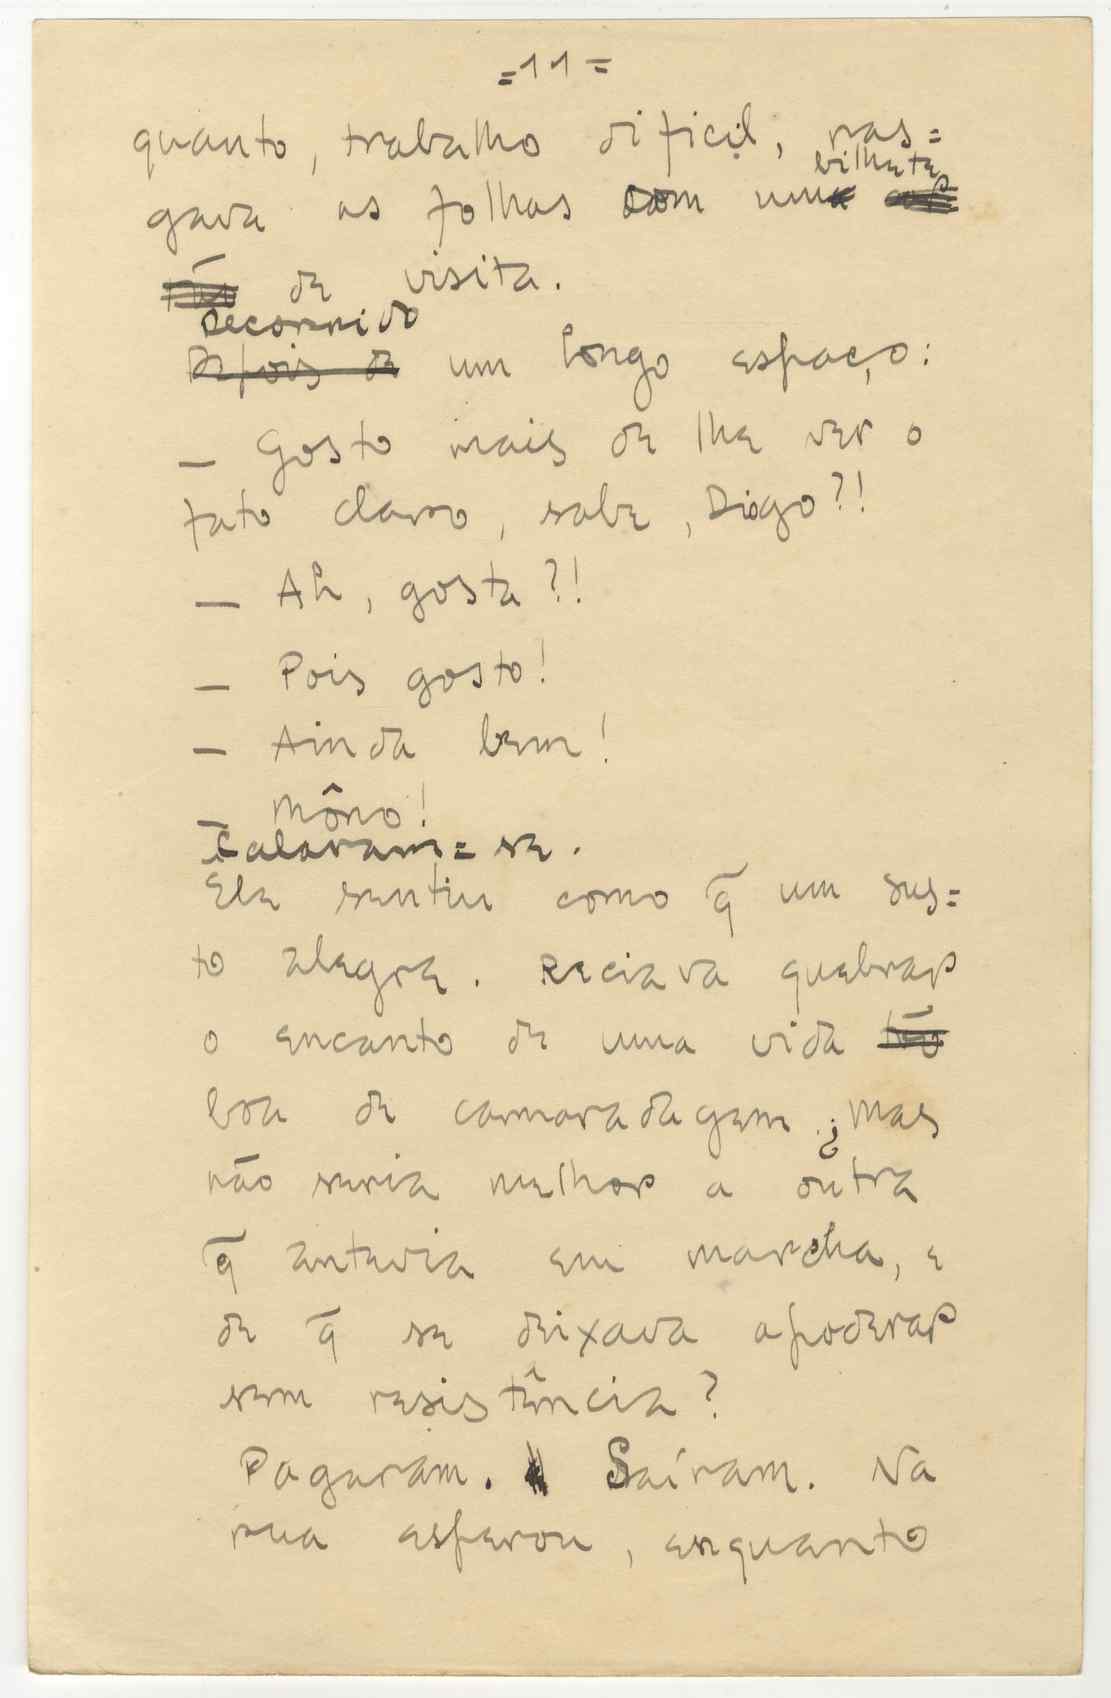 =11=
quanto, trabalho dificil, ras=
bilhete
gava as folhas com um
de visita.
Decorrido
Depois de um longo espaço:
— Gosto mais de lhe ver o
fato claro, sabe, Diogo?!
— Ah, gosta?!
— Pois gosto!
— Ainda bem!
— Môno!
Calaram=se.
Ele sentiu como q̃ um sus=
to alegre. Reciava quebrar
o encanto de uma vida tão
boa de camaradagem. ¿Mas
não seria melhor a outra
q̃ antevia em marcha, e
de q̃ se deixava apoderar
sem resistência?
Pagaram. Saíram. Na
rua esperou, enquanto